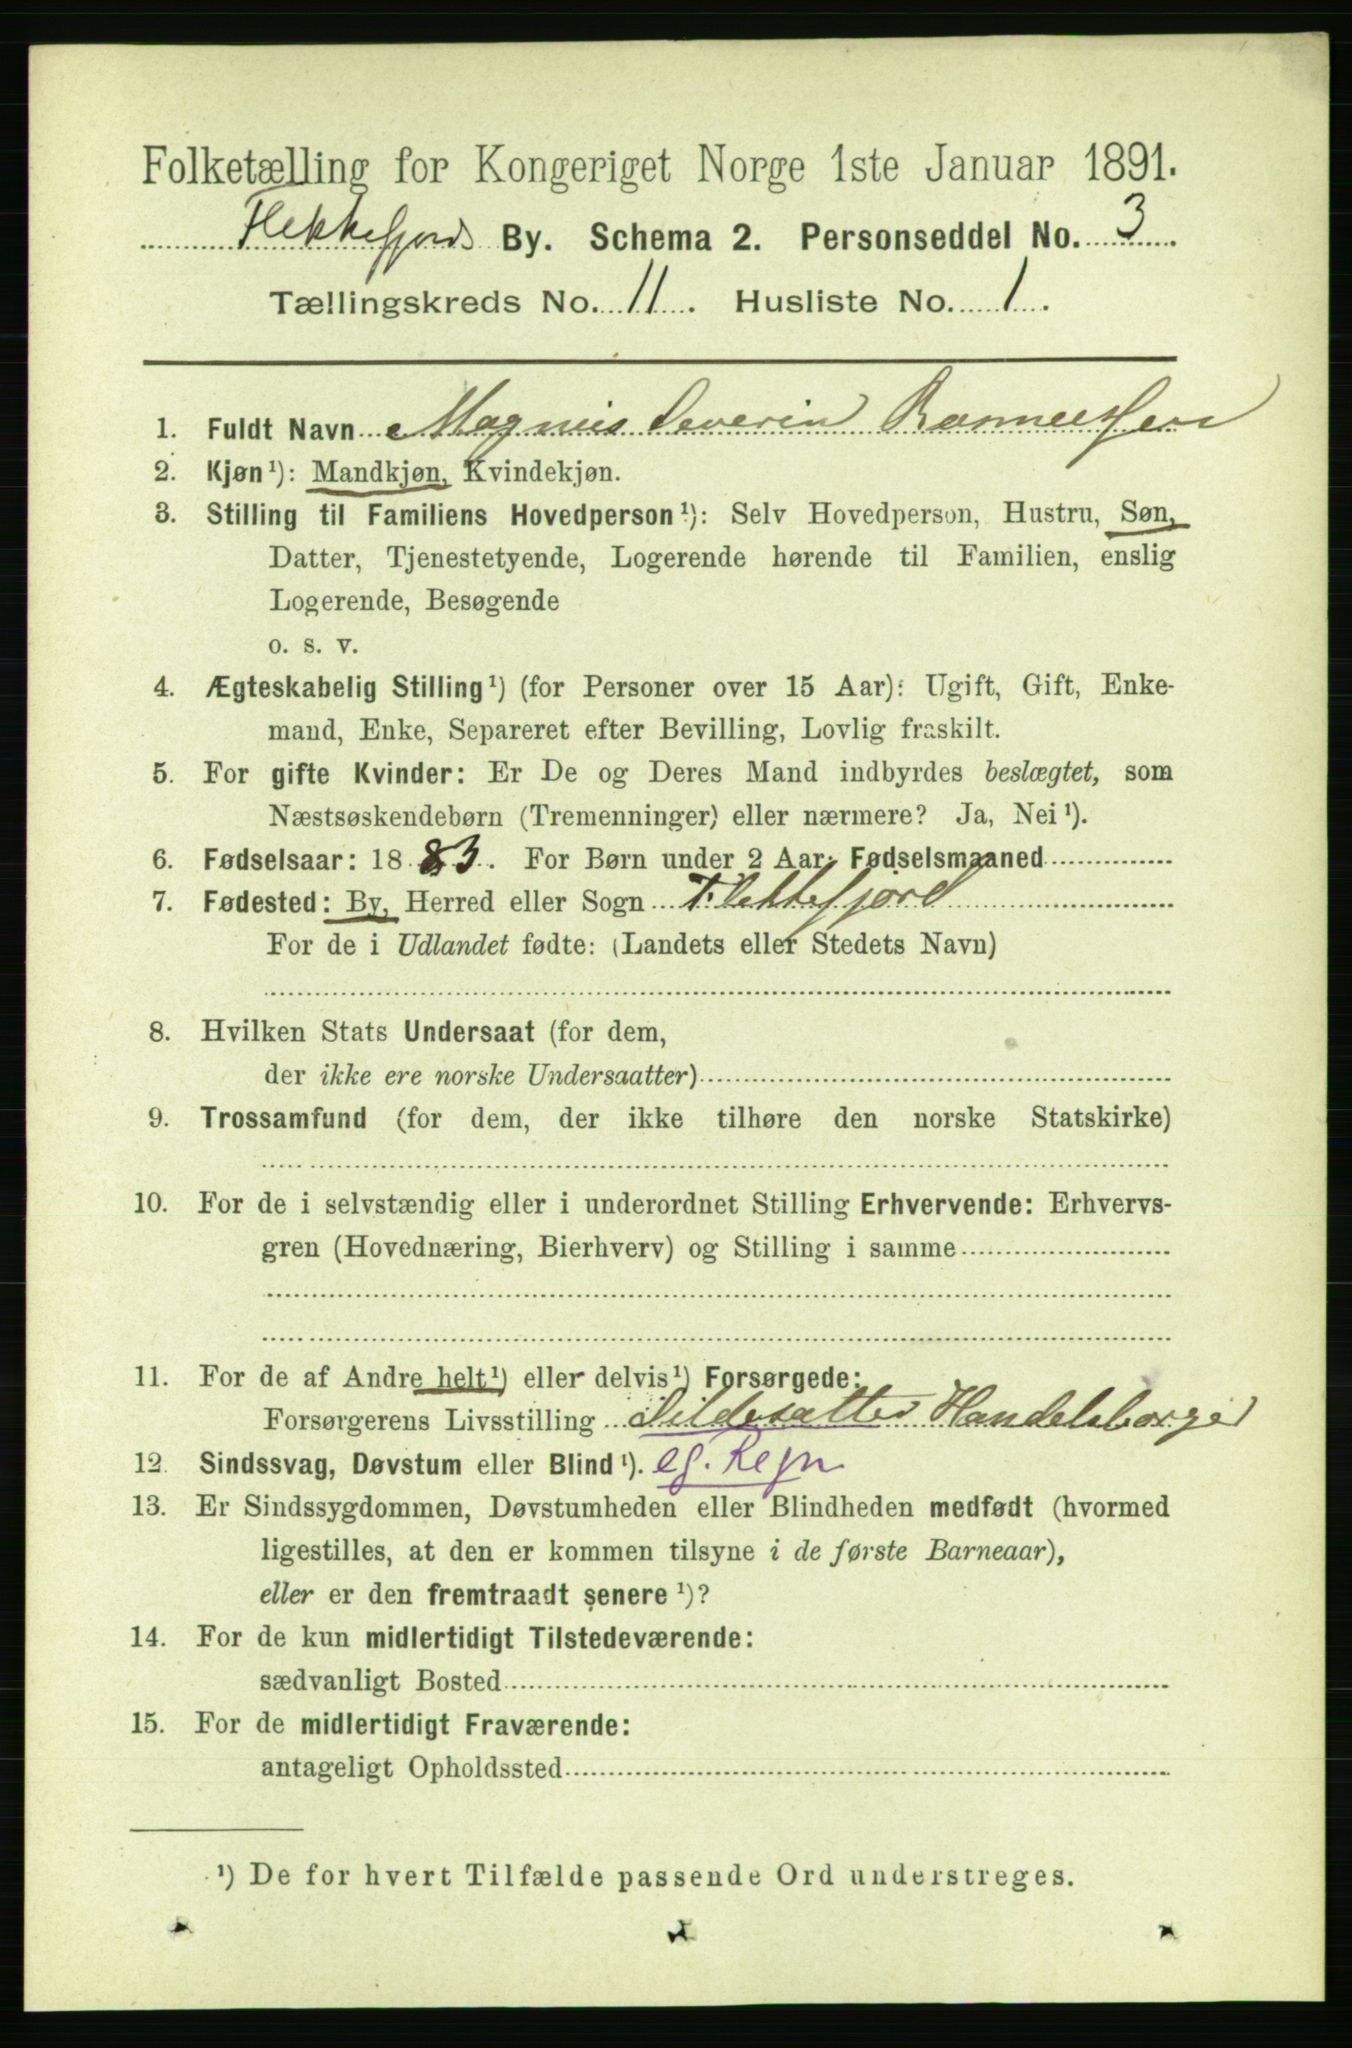 Folketælling for Kongeriget Norge 1ste Januar 1891.
Flekkefjords By. Schema 2. Personseddel No. 3.
Tællingskreds No. 11. Husliste No. 1.
1. Fuldt Navn Magnus Severin Rasmussen
2. Kjøn¹): Mandkjøn, Kvindekjøn.
3. Stilling til Familiens Hovedperson¹): Selv Hovedperson, Hustru, Søn,
Datter, Tjenestetyende, Logerende hørende til Familien, enslig
Logerende, Besøgende
o. s. v.
4. Ægteskabelig Stilling¹) (for Personer over 15 Aar): Ugift, Gift, Enke-
mand, Enke, Separeret efter Bevilling, Lovlig fraskilt.
5. For gifte Kvinder: Er De og Deres Mand indbyrdes beslægtet, som
Næstsøskendebørn (Tremenninger) eller nærmere? Ja, Nei¹).
6. Fødselsaar: 1883. For Børn under 2 Aar: Fødselsmaaned
7. Fødested: By, Herred eller Sogn Flekkefjord
For de i Udlandet fødte: (Landets eller Stedets Navn)
8. Hvilken Stats Undersaat (for dem,
der ikke ere norske Undersaatter)
9. Trossamfund (for dem, der ikke tilhøre den norske Statskirke)
10. For de i selvstændig eller i underordnet Stilling Erhvervende: Erhvervs-
gren (Hovednæring, Bierhverv) og Stilling i samme
11. For de af Andre helt¹) eller delvis¹) Forsørgede:
Forsørgerens Livsstilling Sildesalter Handelsborger
12. Sindssvag, Døvstum eller Blind¹). eg. Regn
13. Er Sindssygdommen, Døvstumheden eller Blindheden medfødt (hvormed
ligestilles, at den er kommen tilsyne i de første Barneaar),
eller er den fremtraadt senere¹)?
14. For de kun midlertidigt Tilstedeværende:
sædvanligt Bosted
15. For de midlertidigt Fraværende:
antageligt Opholdssted
¹) De for hvert Tilfælde passende Ord understreges.